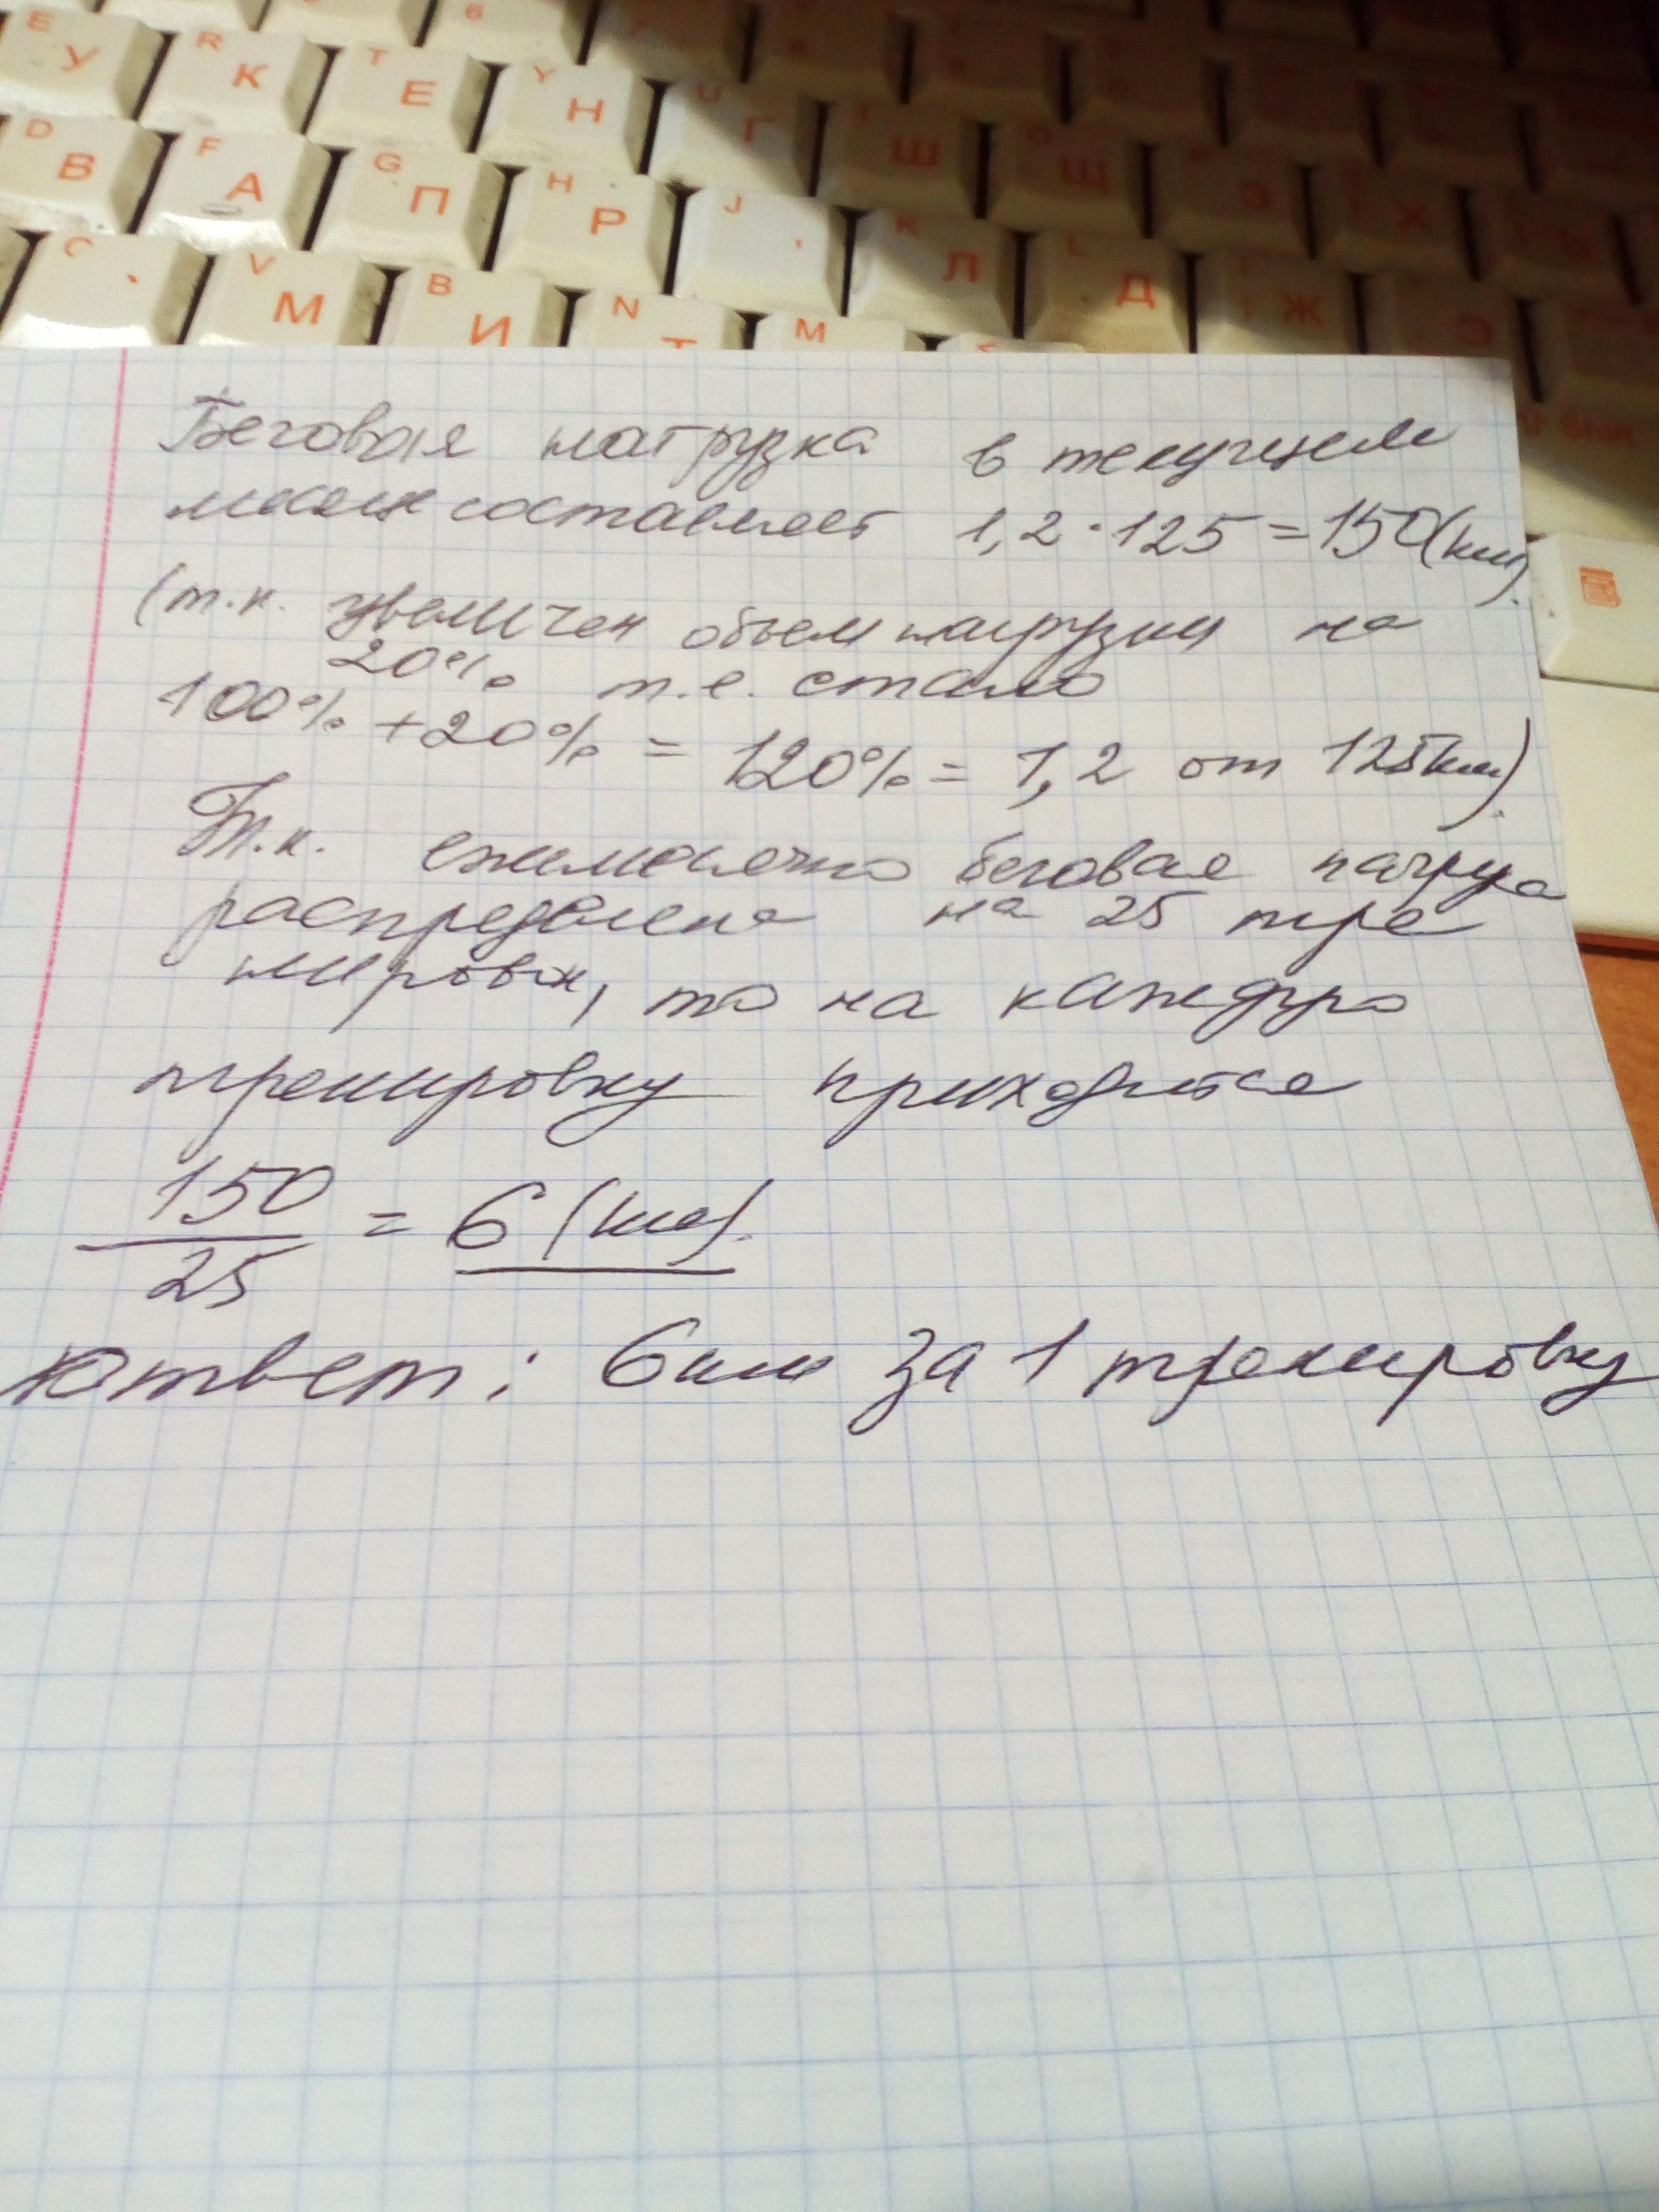 E У R К T Е Y Н U Г Ш Щ З Х
D В F А G П H Р J К Л L Д Ж Э
C V М B И N Т M
Беговая нагрузка в текущем
месяце составляет 1,2·125=150(км).
(т.к. увеличен объем нагрузки на
20% т.е. стало
100% +20% = 120% = 1,2 от 125км).
Т.к. ежемесячно беговая нагруз
распределена на 25 тре
нировок, то на каждую
тренировку приходится
150/25 = 6 (км).
Ответ: 6км за 1 тренировку